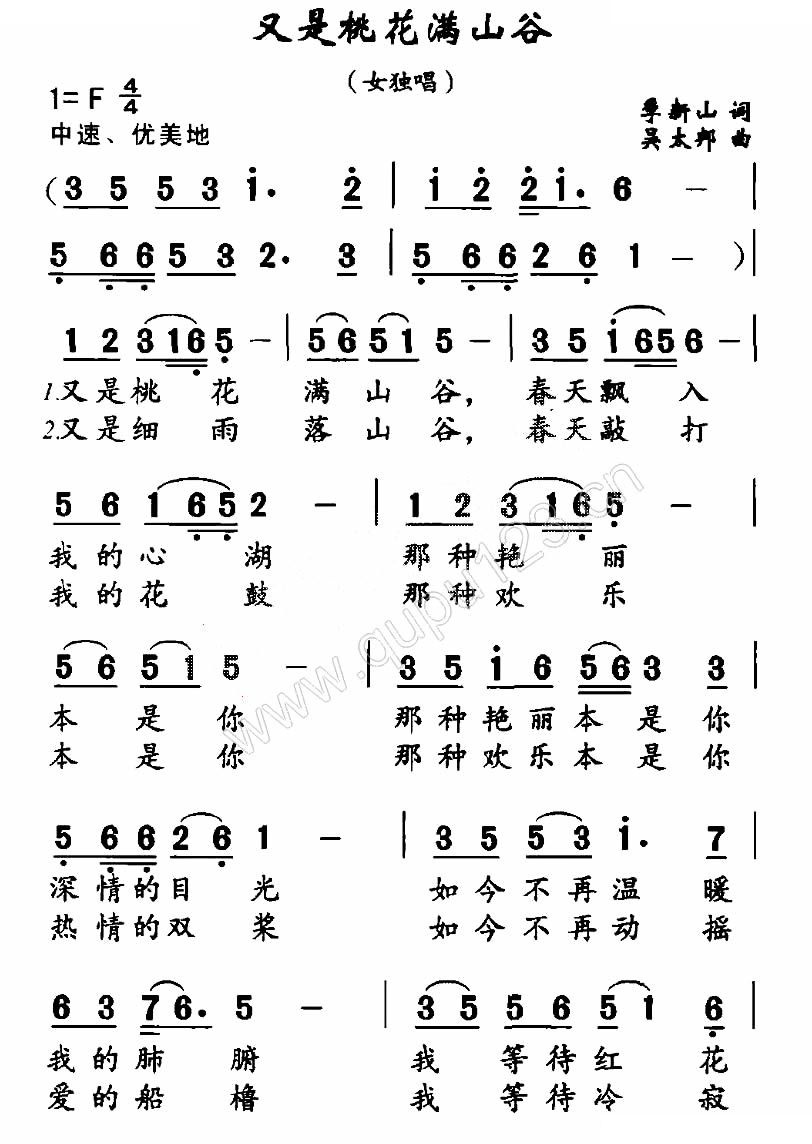 又是桃花满山谷
（女独唱）
1=F 4/4
季新山 词
中速、优美地
吴太邦 曲
(3 5 5 3 i. 2 | i 2 2i. 6 - |
5 66 5 3 2. 3 | 5 66 2 6 1 - )|
1 2 3 16 5 - | 56 51 5 - | 3 5 i 65 6 - |
1.又是桃 花 满 山 谷，春天飘 入
2.又是细 雨 落 山 谷，春天敲 打
5 6 1 65 2 - | 1 2 3 16 5 - |
我的心 湖 那种艳 丽
我的花 鼓 那种欢 乐
56 51 5 - | 3 5 i 6 56 3 3 |
本 是 你 那种艳丽本是你
本 是 你 那种欢乐本是你
5 66 26 1 - | 3 5 5 3 i. 7 |
深情的目 光 如今不再温 暖
热情的双 桨 如今不再动 摇
6 3 76. 5 - | 35 5 6 51 6 |
我的肺 腑 我 等待红 花
爱的船 橹 我 等待冷 寂
www.qupu123.cn